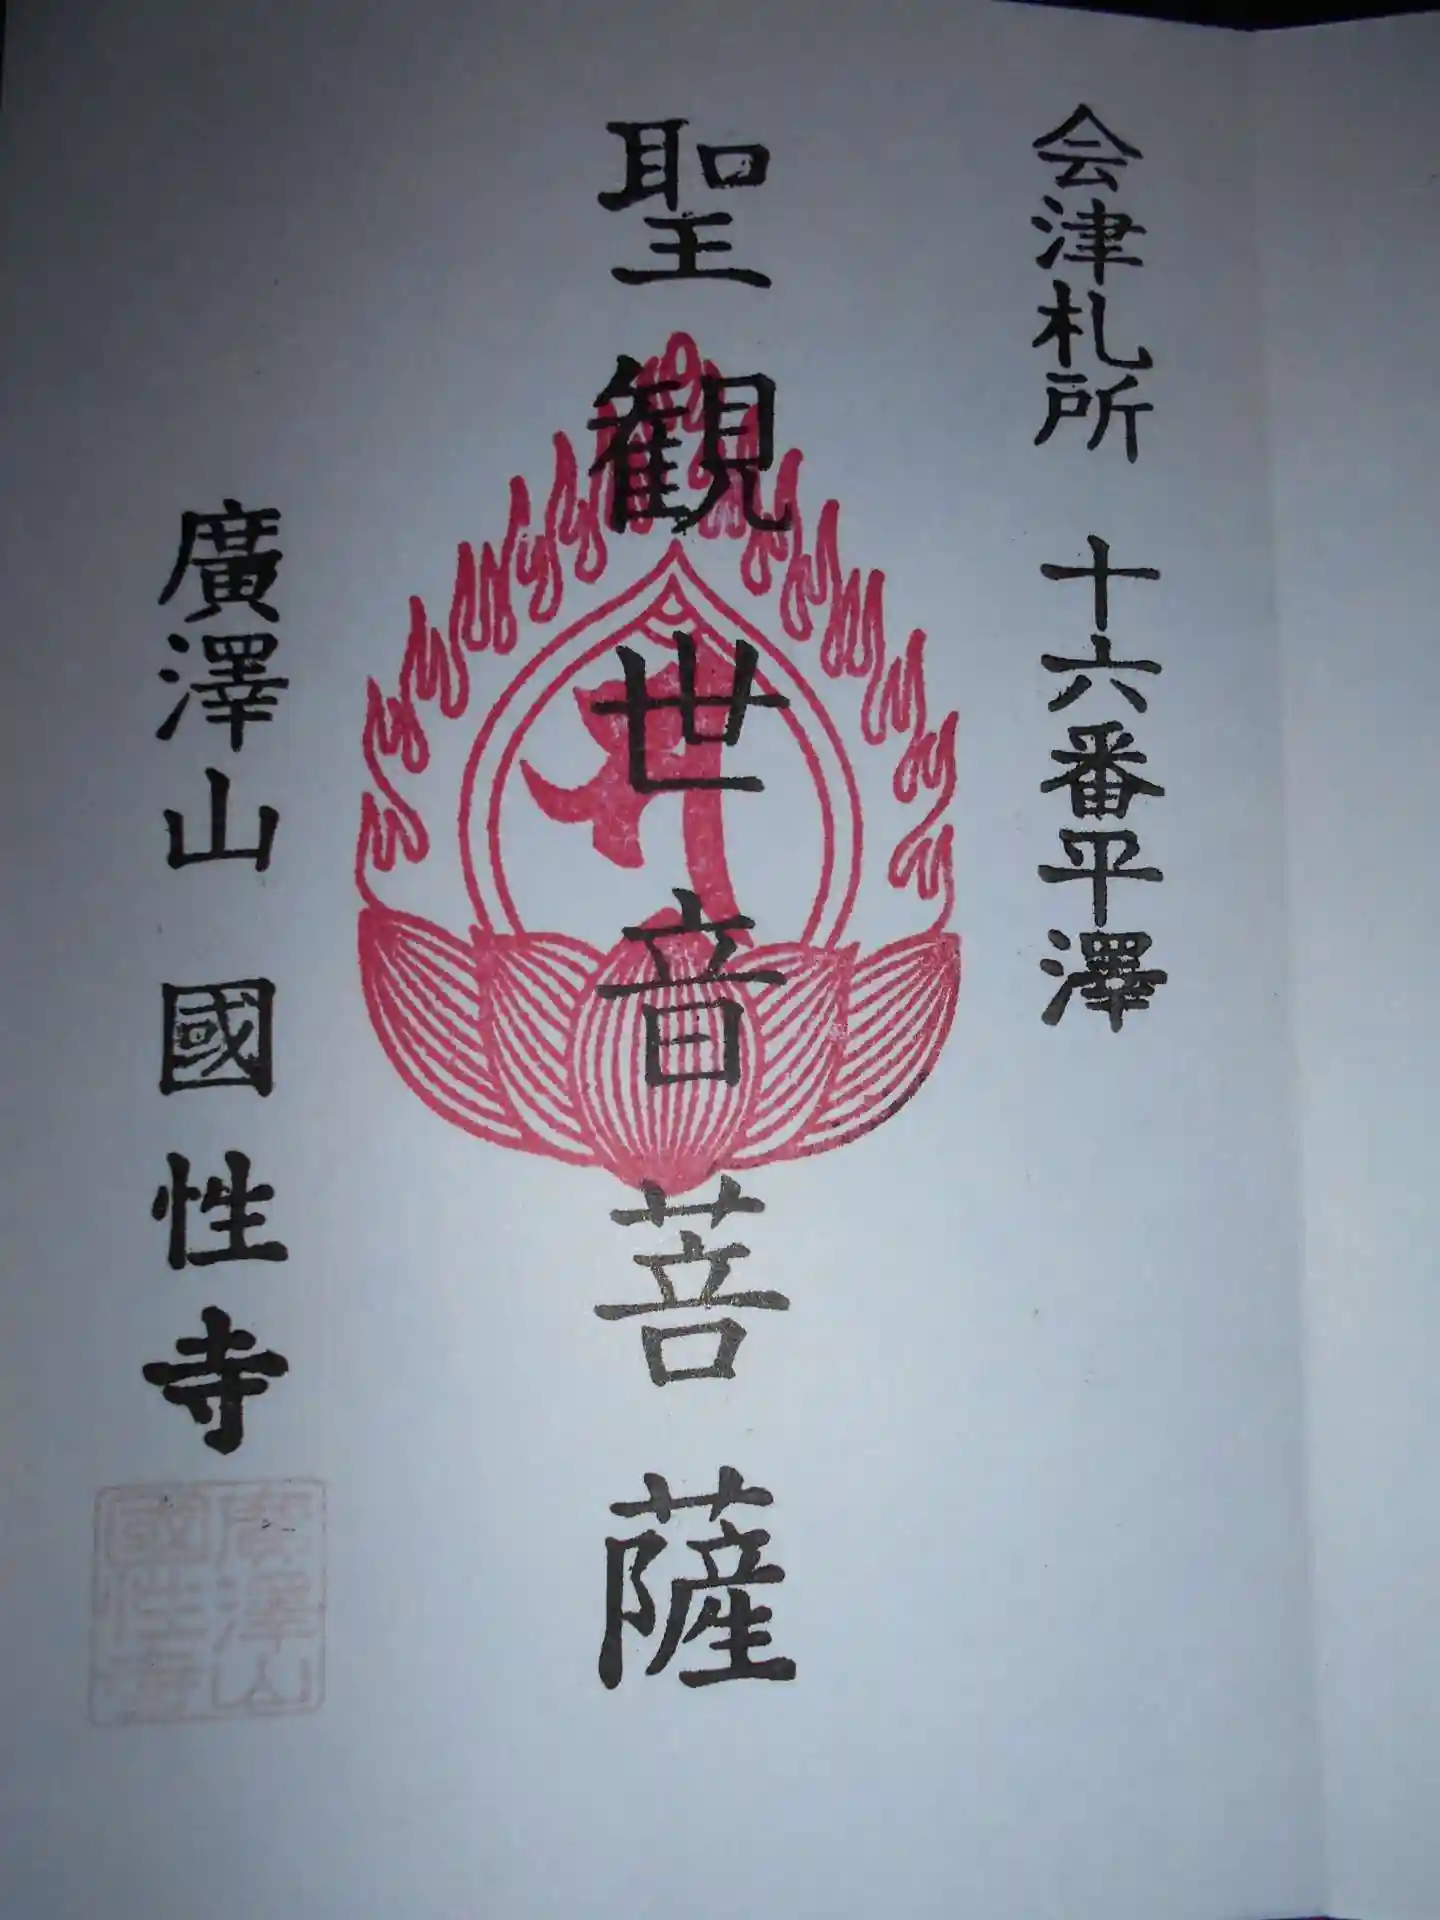 会津札所 十六番平澤
聖觀世音菩薩
廣澤山 國性寺
廣澤山
國性寺